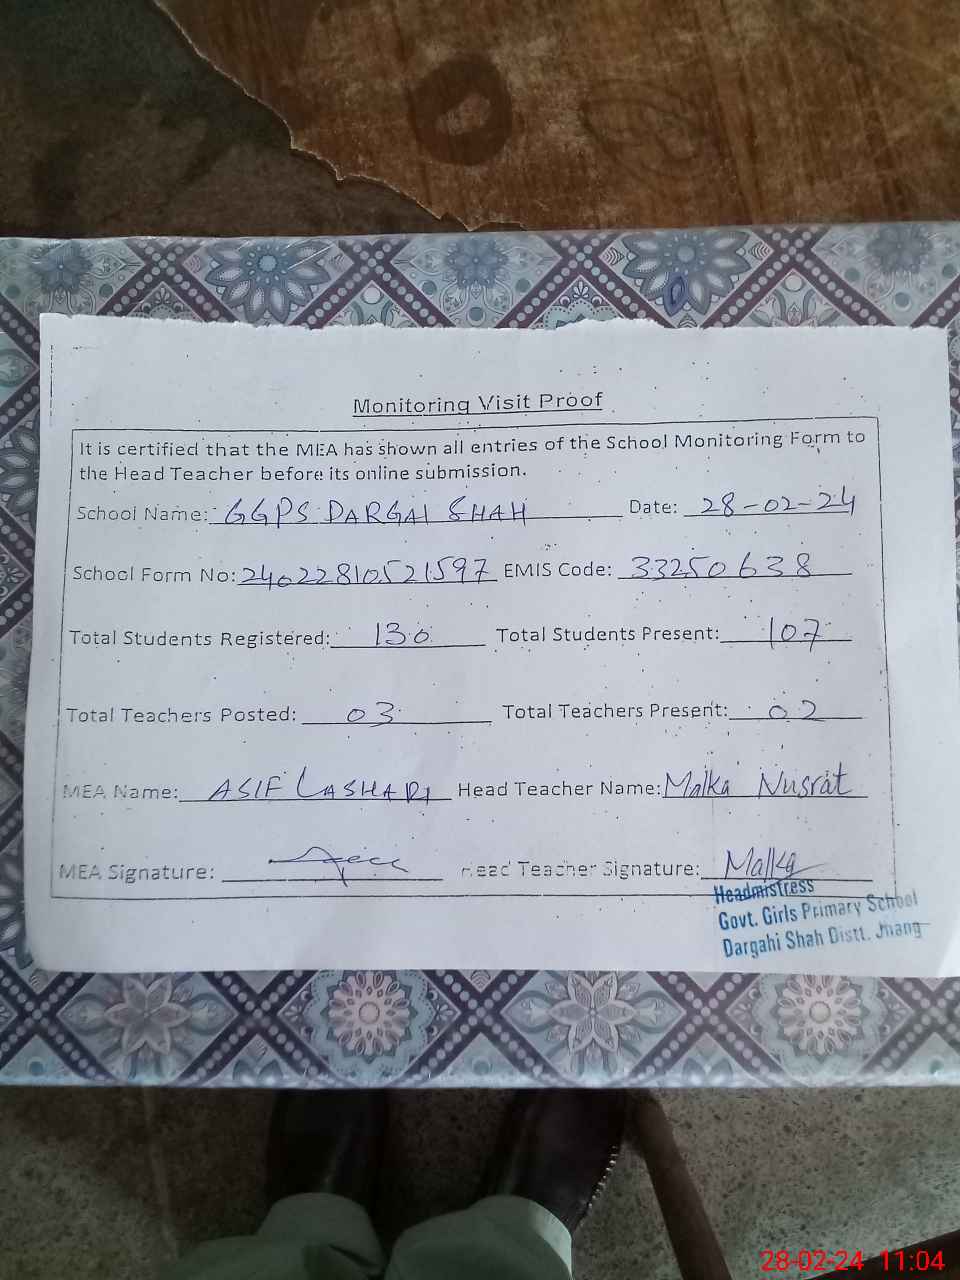 Monitoring Visit Proof
It is certified that the MEA has shown all entries of the School Monitoring Form to
the Head Teacher before its online submission.
School Name: GGPS DARGAI SHAH Date: 28-02-24
School Form No: 24022810521597 EMIS Code: 33250638
Total Students Registered: 130 Total Students Present: 107
Total Teachers Posted: 03 Total Teachers Present: 02
MEA Name: ASIF LASHARI Head Teacher Name: Malka Nusrat
MEA Signature: Head Teacher Signature: Malka
Headmistress
Govt. Girls Primary School
Dargahi Shah Distt. Jhang
28-02-24 11:04